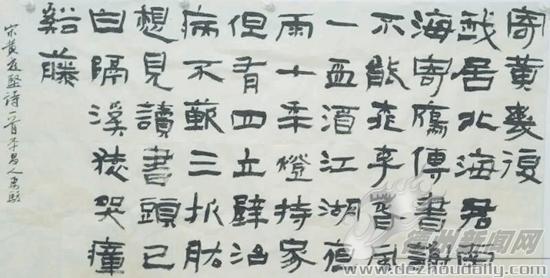 寄黄幾復
我居北海君南
海寄雁傳書謝
不能桃李春風
一盃酒江湖夜
雨十年燈持家
但有四立壁治
病不蘄三折肱
想見讀書頭已
白隔溪猿哭瘴
谿藤
宋黄庭堅詩一首
德州新闻网
www.dezhoudaily.com